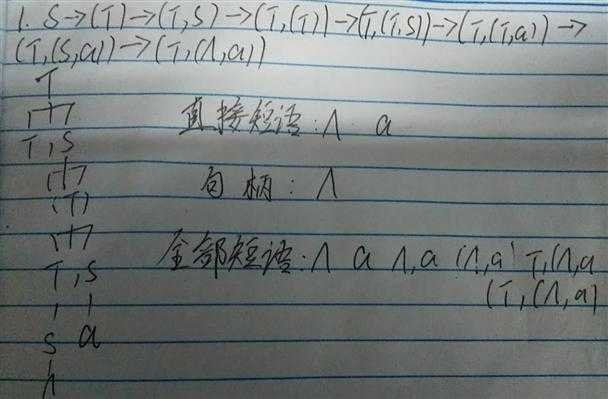 1. S→(T)→(T,S)→(T,(T))→(T,(T,S))→(T,(T,a))→
(T,(S,a))→(T,(Λ,a))
T
T , S
直接短语:Λ a
(T)
句柄: Λ
T , S
全部短语:Λ a Λ,a (Λ,a) T,(Λ,a
(T,(Λ,a)
S a
Λ